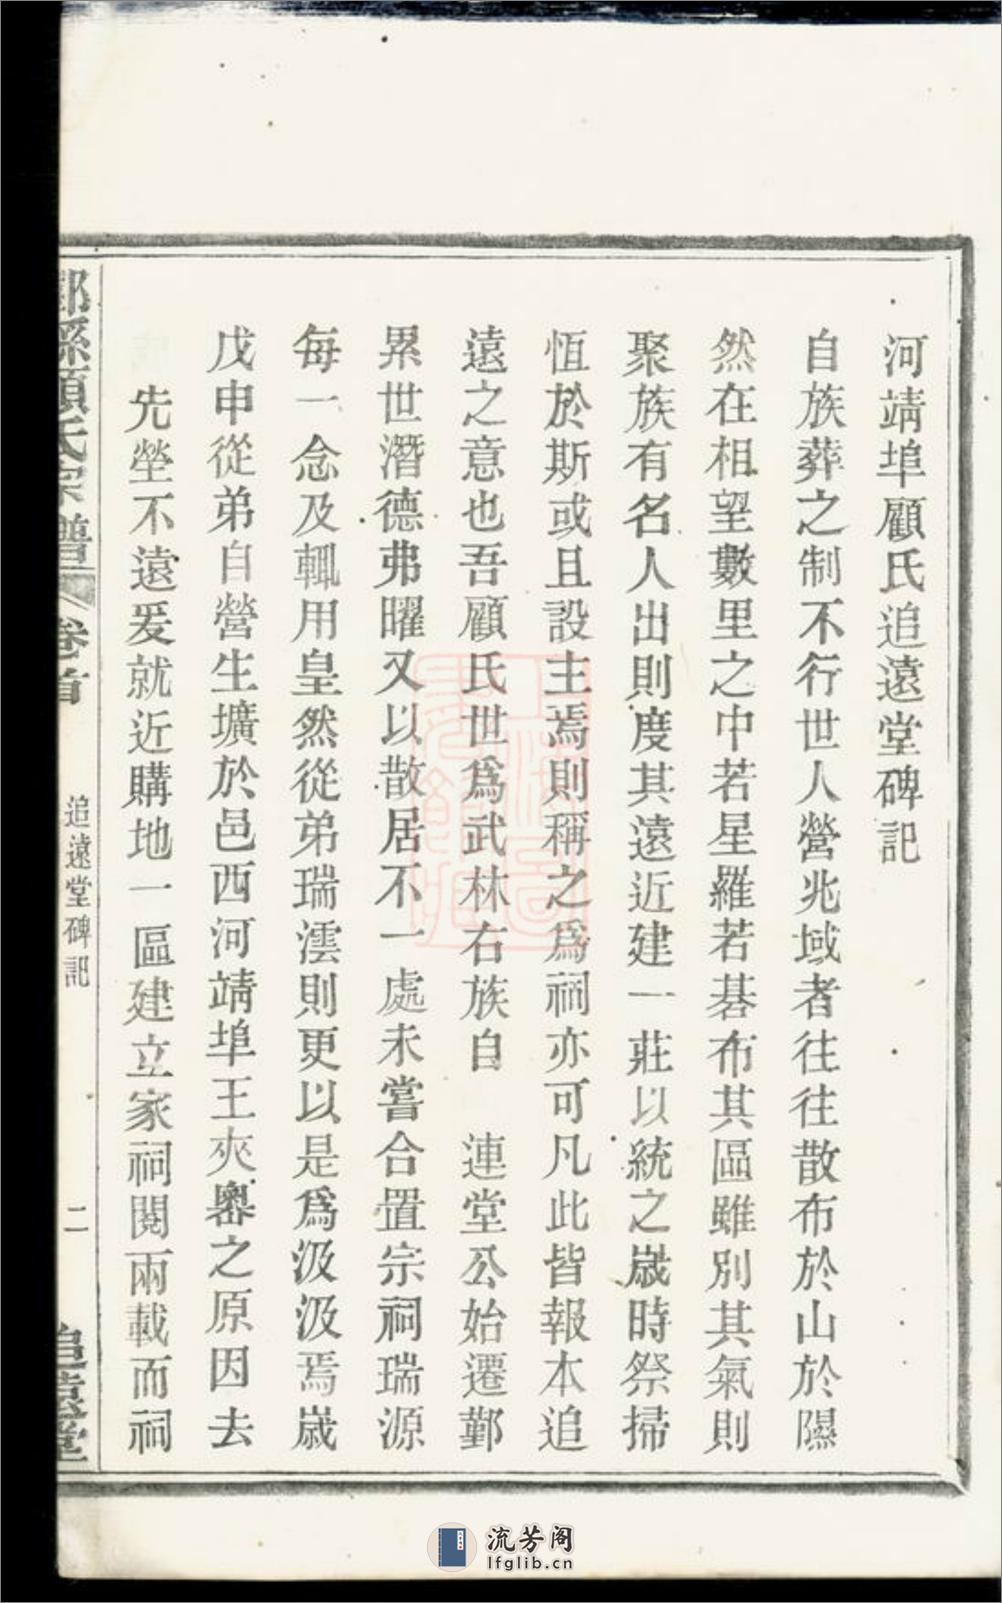 河靖埠顧氏追遠堂碑記
自族葬之制不行世人營兆域者往往散布於山於隰
然在相望數里之中若星羅若碁布其區雖別其氣則
聚族有名人出則度其遠近建一莊以統之歲時祭掃
恆於斯或且設主焉則稱之爲祠亦可凡此皆報本追
遠之意也吾顧氏世爲武林右族自 連堂公始遷鄞
累世潛德弗曜又以散居不一處未嘗合置宗祠瑞源
每一念及輒用皇然從弟瑞澐則更以是爲汲汲焉歲
戊申從弟自營生壙於邑西河靖埠王夾嶴之原因去
先塋不遠爰就近購地一區建立家祠閱兩載而祠
鄞縣顧氏宗譜 卷首 追遠堂碑記 二 追遠堂
流芳阁
lfglib.cn